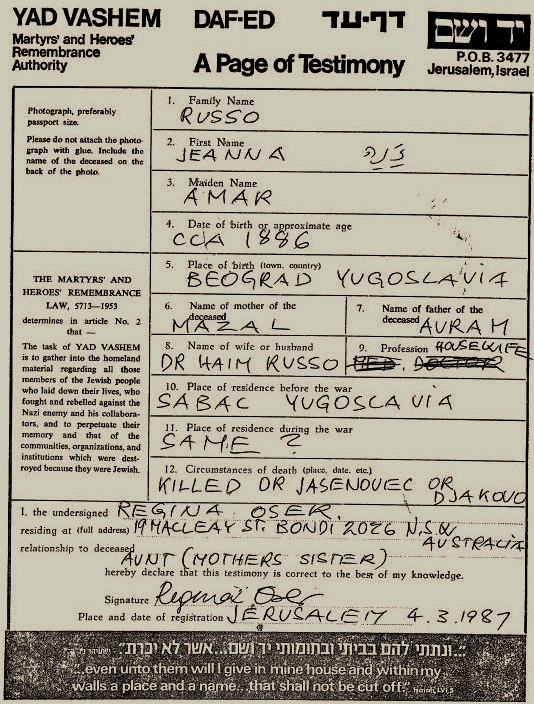 YAD VASHEM
Martyrs' and Heroes'
Remembrance
Authority
DAF-ED דף-עד
A Page of Testimony
יד ושם
P.O.B. 3477
Jerusalem, Israel
Photograph, preferably
passport size.
Please do not attach the photo-
graph with glue. Include the
name of the deceased on the
back of the photo.
THE MARTYRS' AND
HEROES' REMEMBRANCE
LAW, 5713—1953
determines in article No. 2
that —
The task of YAD VASHEM
is to gather into the homeland
material regarding all those
members of the Jewish people
who laid down their lives, who
fought and rebelled against the
Nazi enemy and his collabora-
tors, and to perpetuate their
memory and that of the
communities, organizations, and
institutions which were dest-
royed because they were Jewish.
1. Family Name
RUSSO
2. First Name
JEANNA
3. Maiden Name
AMAR
4. Date of birth or approximate age
CCA 1886
5. Place of birth (town, country)
BEOGRAD YUGOSLAVIA
6. Name of mother of the
deceased
MAZAL
7. Name of father of the
deceased AVRAM
8. Name of wife or husband
DR HAIM RUSSO
9. Profession HOUSEWIFE
MED. DOCTOR
10. Place of residence before the war
SABAC YUGOSLAVIA
11. Place of residence during the war
SAME ?
12. Circumstances of death (place, date, etc.)
KILLED OR JASENOVEC OR
DJAKOVO
I, the undersigned REGINA OSER
residing at (full address) 19 MACLEAY ST. BONDI 2026 N.S.W
AUSTRALIA
relationship to deceased
AUNT (MOTHERS SISTER)
hereby declare that this testimony is correct to the best of my knowledge.
Signature Regina Oser
Place and date of registration JERUSALEM 4.3.1987
"...ונתתי להם בביתי ובחומותי יד ושם...אשר לא יכרת"
"...even unto them will I give in mine house and within my
walls a place and a name...that shall not be cut off." Isaiah, LVI.5